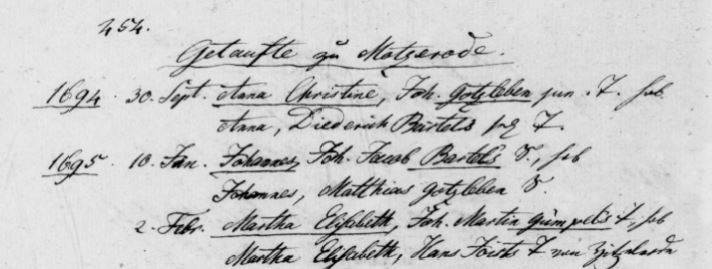 254.
Getaufte zu Motzerode.
1694. 30. Sept. Anna Christine, Joh. Gotzleben jun. T.
Anna, Diederich Bartels T.
1695. 10. Jan. Johannes, Joh. Jacob Bartels S.,
Johannes, Matthias Gotzleben S.
2. Febr. Martha Elisabeth, Joh. Martin Gümpels T.,
Martha Elisabeth, Hans T.